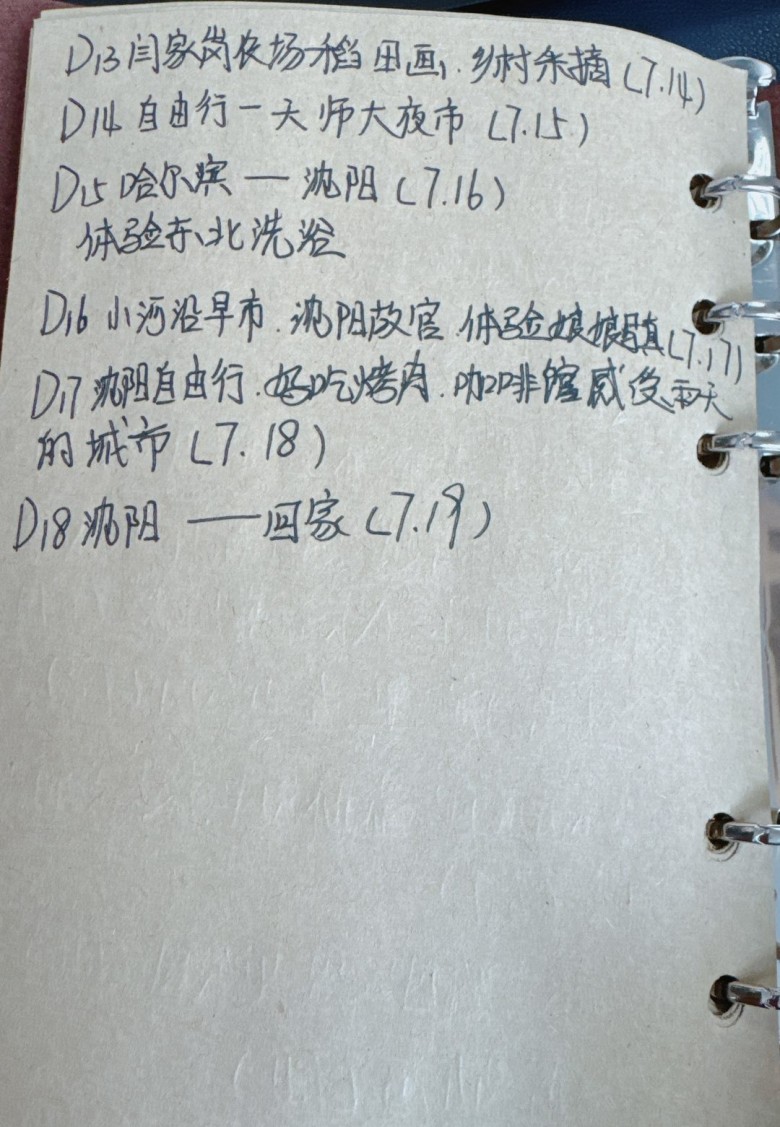 D13 闫家岗农场稻田画, 乡村采摘 (7.14)
D14 自由行一天 师大夜市 (7.15)
D15 哈尔滨 — 沈阳 (7.16)
体验东北洗浴
D16 小河沿早市. 沈阳故宫 体验娘娘 (7.17)
D17 沈阳自由行. 好吃烤肉. 咖啡馆感受雨天
的城市 (7.18)
D18 沈阳 —— 回家 (7.19)